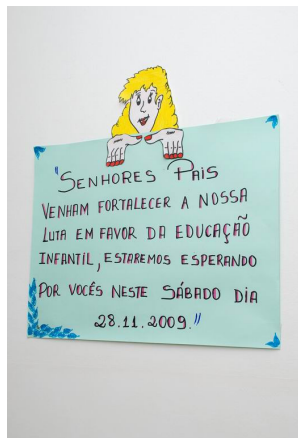 "SENHORES PAIS
VENHAM FORTALECER A NOSSA
LUTA EM FAVOR DA EDUCAÇÃO
INFANTIL, ESTAREMOS ESPERANDO
POR VOCÊS NESTE SÁBADO DIA
28.11.2009."